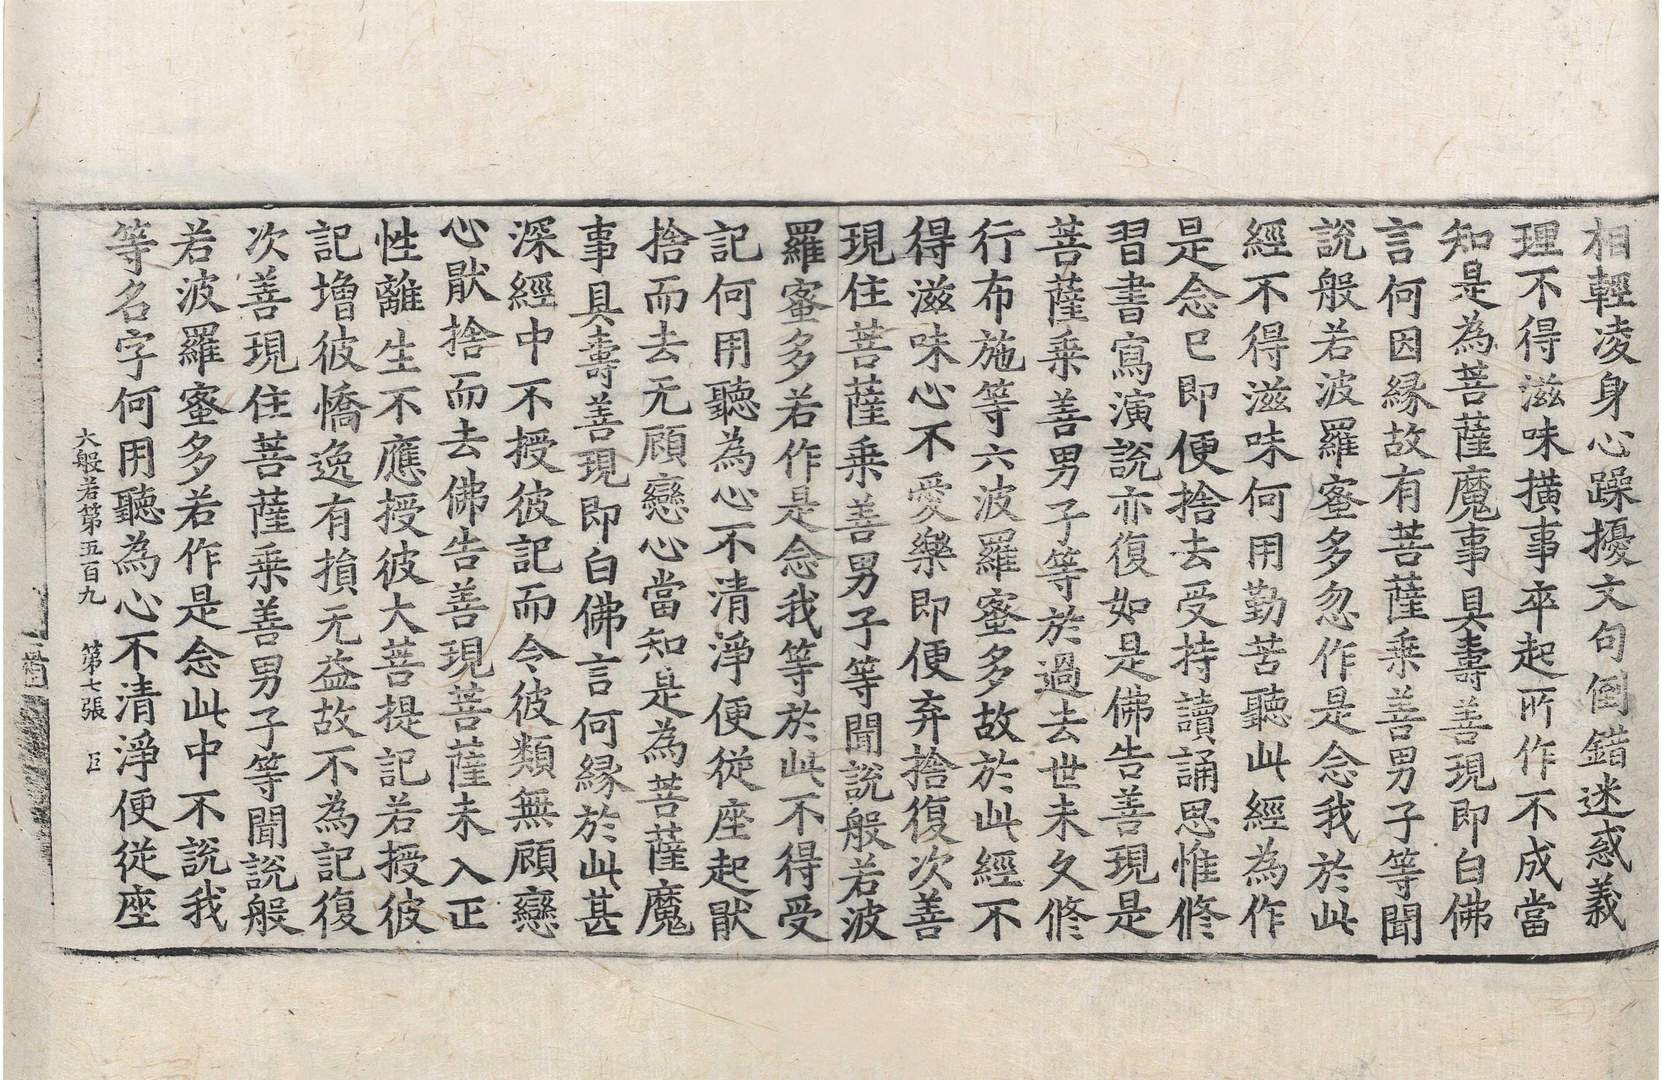 相輕淩身心躁擾文句倒錯迷惑義
理不得滋味撗事卒起所作不成當
知是為菩薩魔事具壽善現即白佛
言何因緣故有菩薩乘善男子等聞
說般若波羅蜜多忽作是念我於此
經不得滋味何用勤苦聽此經為作
是念已即便捨去受持讀誦思惟修
習書寫演說亦復如是佛告善現是
菩薩乘善男子等於過去世未久修
行布施等六波羅蜜多故於此經不
得滋味心不愛樂即便弃捨復次善
現住菩薩乘善男子等聞說般若波
羅蜜多若作是念我等於此不得受
記何用聽為心不清淨便從座起猒
捨而去无顧戀心當知是為菩薩魔
事具壽善現即白佛言何緣於此甚
深經中不授彼記而令彼類無顧戀
心猒捨而去佛告善現菩薩未入正
性離生不應授彼大菩提記若授彼
記增彼憍逸有損无益故不為記復
次善現住菩薩乘善男子等聞說般
若波羅蜜多若作是念此中不說我
等名字何用聽為心不清淨便從座
大般若第五百九 第七張 巨